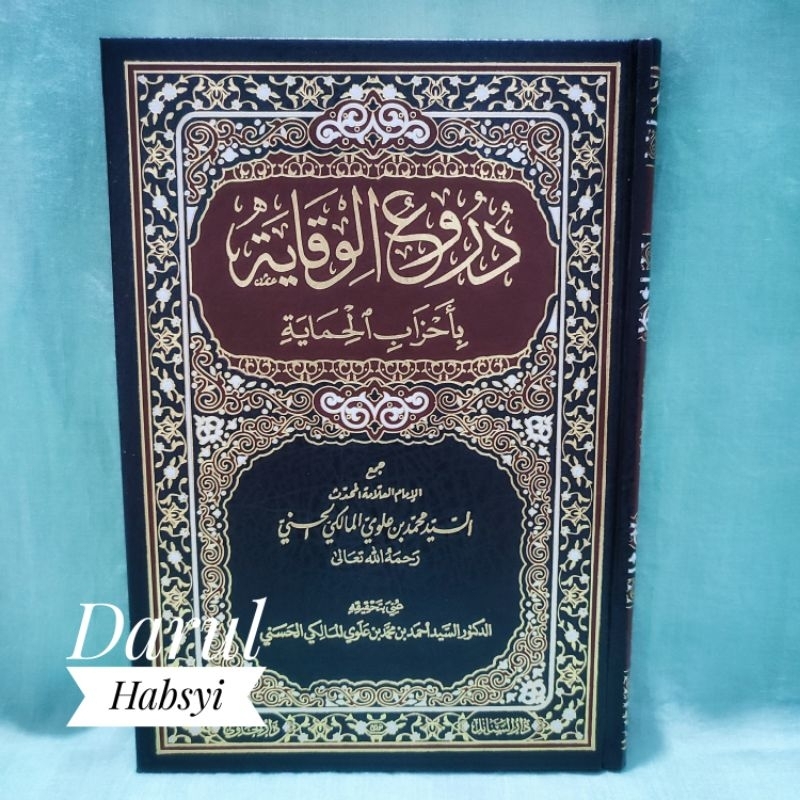 دُرُوعُ الْوِقَايَةِ
بِأَحْزَابِ الْحِمَايَةِ
جمع
الإمام العلامة المحدث
السيد محمد بن علوي المالكي الحسني
رحمه الله تعالى
عني بتحقيقه
الدكتور السيد أحمد بن محمد بن علوي المالكي الحسني
دار السنابل
Darul
Habsyi